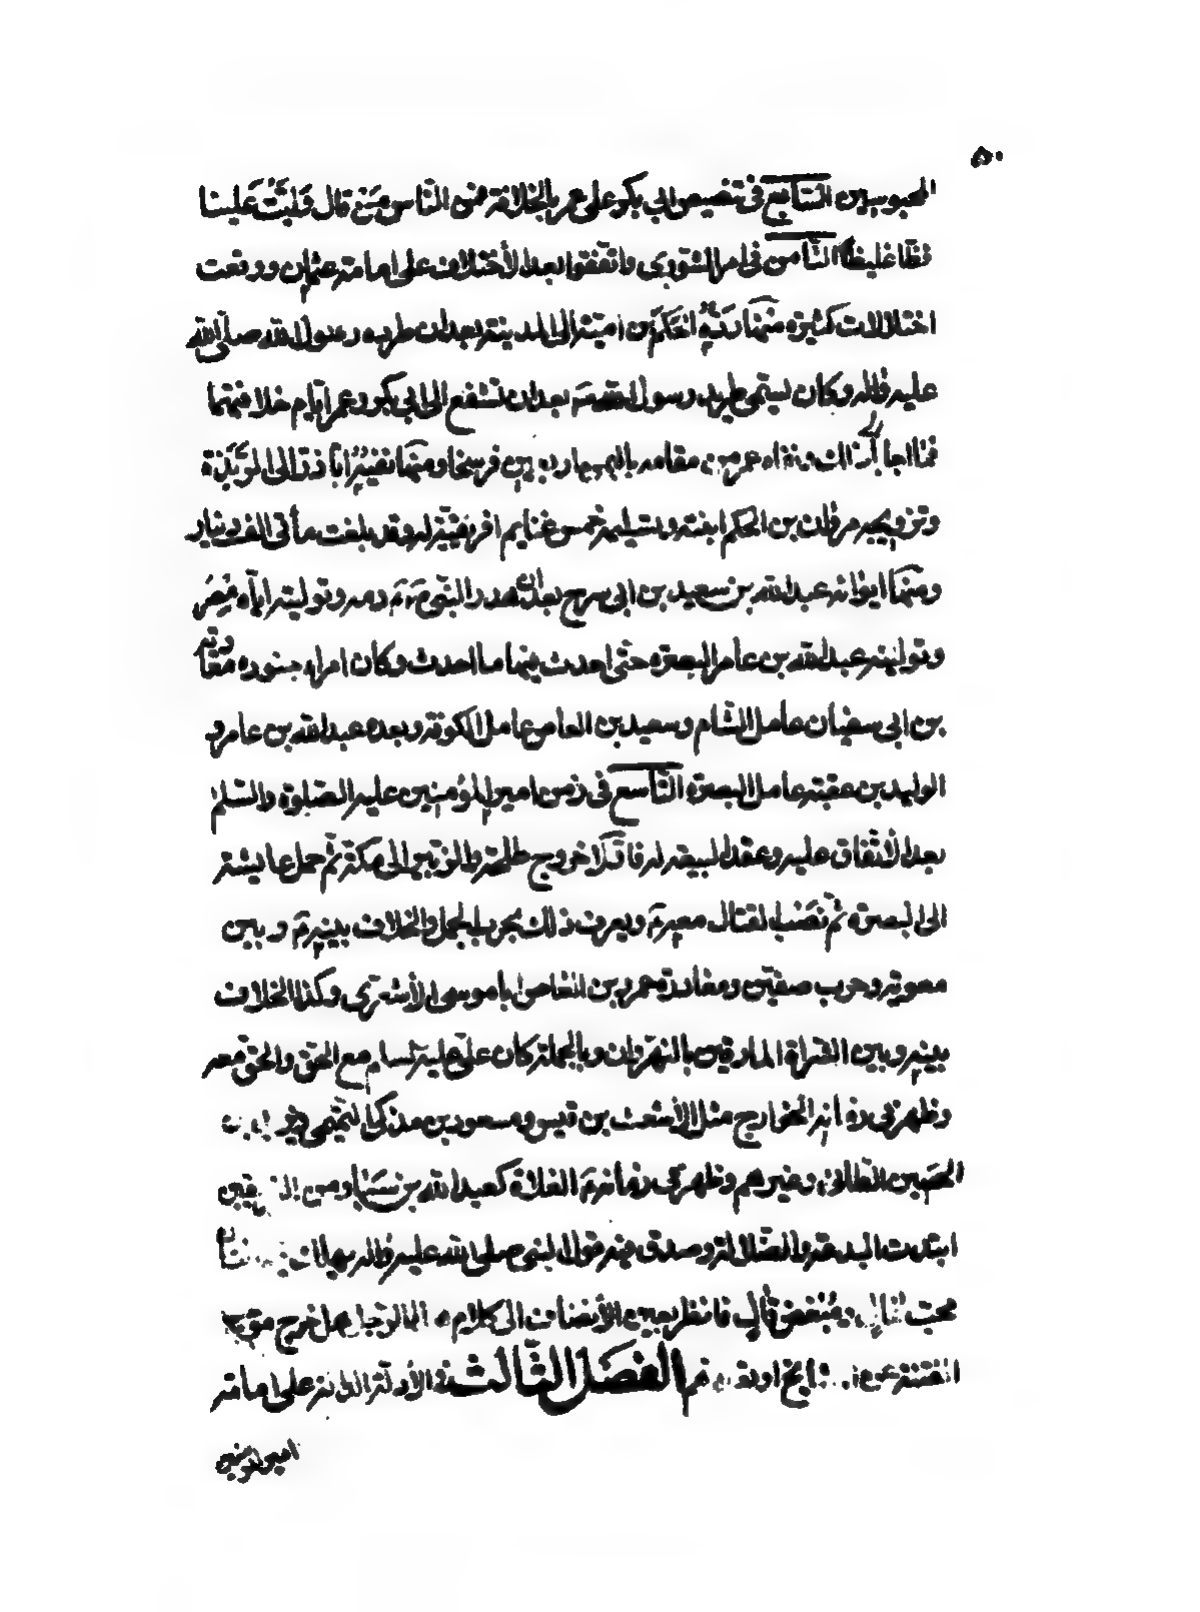 ٥٠
المحبوسين السابع في تنصيص ابي بكر على عمر بالخلافة فمن الناس من قال وليت علينا
فظا غليظا الثامن في امر الشورى واتفقوا بعد الأختلاف على امامة عثمان ووقعت
اختلالات كثيرة منها ردّه الحكم بن امية الى المدينة بعد ان طرده رسول الله صلى الله
عليه واله وكان يسمى طريد رسول الله بعد ان تشفع الى ابي بكر وعمر ايام خلافتهما
فما اجابا الى ذلك ونفاه عمر من مقامه باليمن اربعين فرسخا ومنها نفيه اباذر الى الربذة
وتزويجه مروان بن الحكم ابنته وتسليمه خمس غنايم افريقية له وقد بلغت مأتي الف دينار
ومنها ايوائه عبدالله بن سعيد بن ابي سرح بعد ان هدر النبي دمه وتوليته اياه مصر
وتوليته عبدالله بن عامر البصرة حتى احدث فيها ما احدث وكان امراء جنوده معاوية
بن ابي سفيان عامل الشام وسعيد بن العاص عامل الكوفة وبعده عبدالله بن عامر و
الوليد بن عقبة عامل البصرة التاسع في زمن امير المؤمنين عليه الصلوة والسلم
بعد الأتفاق عليه وعقد البيعة له فاولا خروج طلحة والزبير الى مكة ثم حمل عايشة
الى البصرة ثم نصب القتال معه ويعرف ذلك بحرب الجمل والخلاف بينه وبين
معوية وحرب صفين ومغادرة عمرو بن العاص اباموسى الأشعري وكذا الخلاف
بينه وبين الشراة المارقين بالنهروان وبالجملة كان علي عليه السلم مع الحق والحق معه
وظهر في زمانه الخوارج مثل الأشعث بن قيس ومسعود بن مذكى التميمي وزيد بن
الحصين الطائي وغيرهم وظهر في زمانه الغلاة كعبدالله بن سبا ومن الفريقين
ابتدات البدعة والضلالة وصدق فيه قول النبي صلى الله عليه واله يهلك فيه اثنان
محب غال ومبغض قال فانظر بعين الأنصاف الى كلام هذا الرجل هل خرج موجب
الفتنة عن المشايخ او تعداهم الفصل الثالث في الأدلة الدالة على امامة
امير المؤمنين